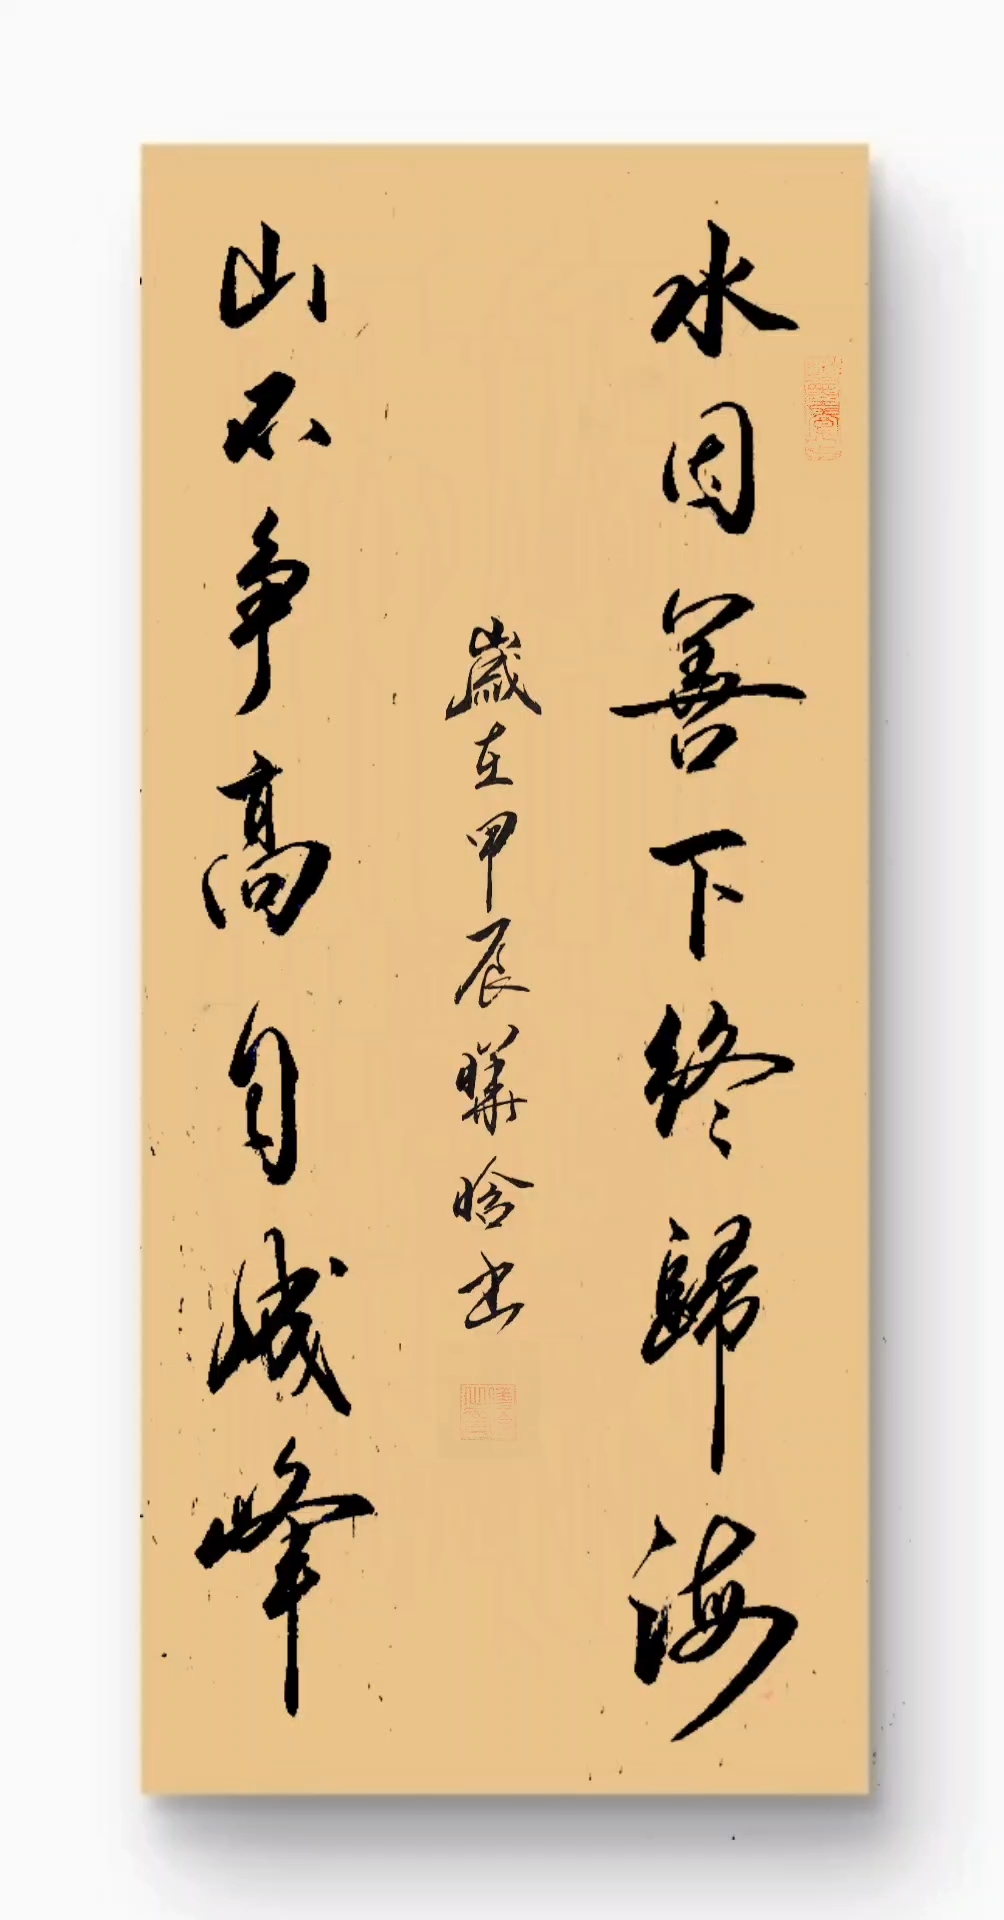 水因善下終歸海
山不争高自成峰
歲在甲辰曄晗书